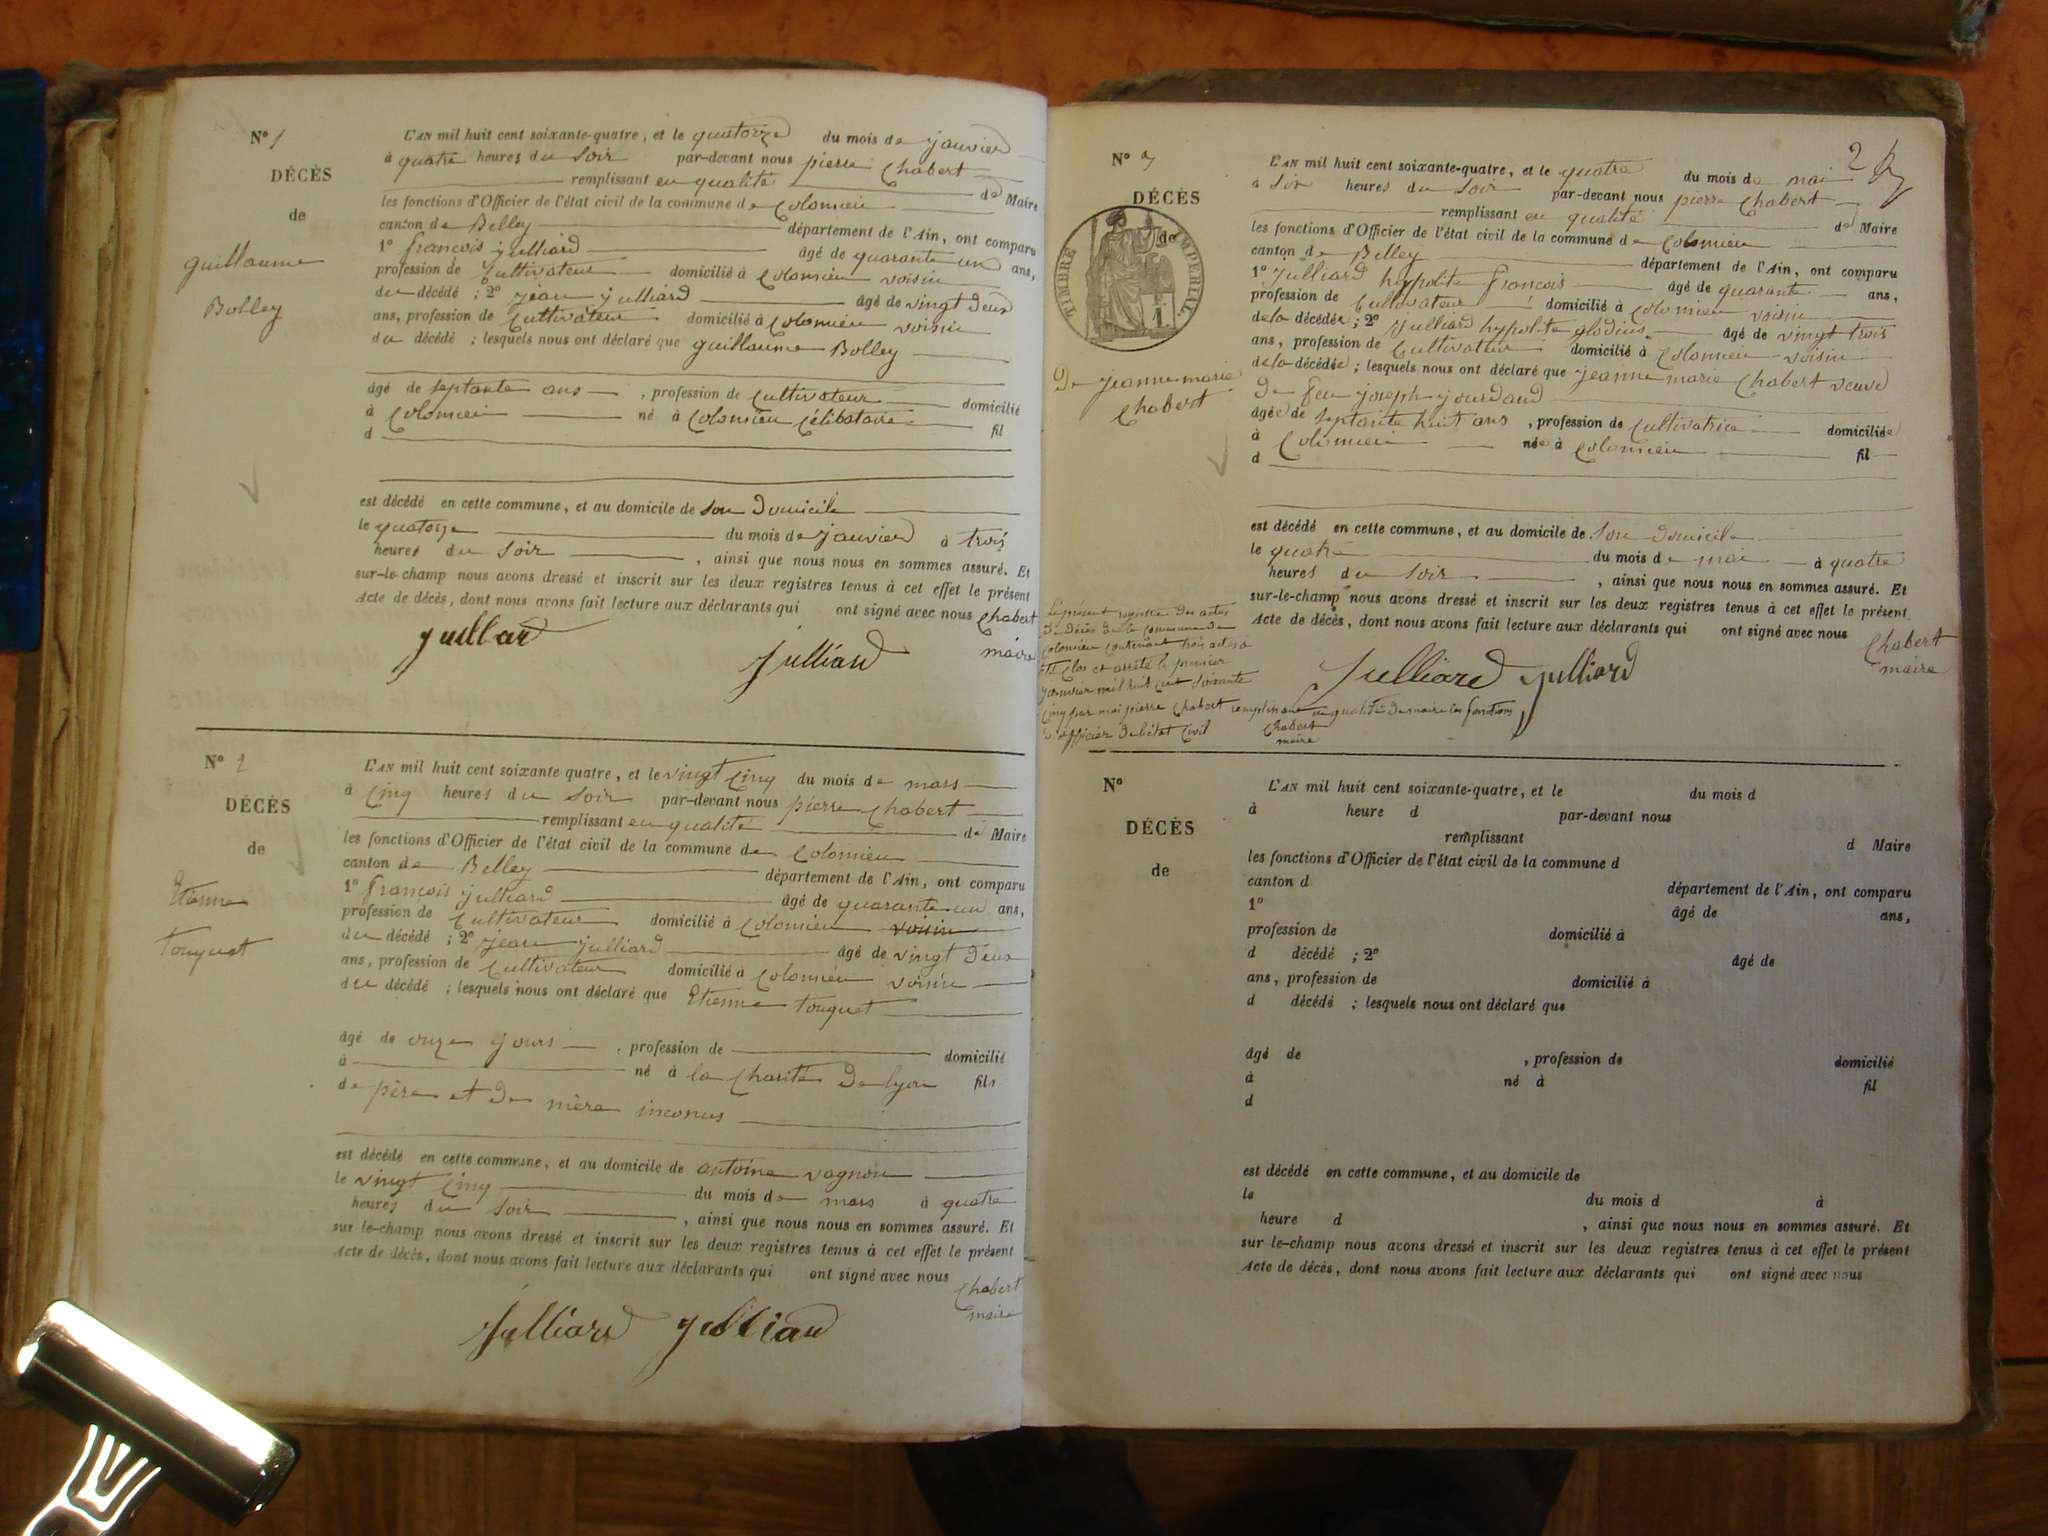 N° 1
DÉCÈS
de
guillaume
Bolley
L'AN mil huit cent soixante-quatre, et le quatorze du mois de janvier
à quatre heures du Soir par-devant nous pierre Chabert
remplissant en qualité de Maire
les fonctions d'Officier de l'état civil de la commune de Colomieu
canton de Belley département de l'Ain, ont comparu
1° françois julliard âgé de quarante un ans,
profession de Cultivateur domicilié à Colomieu voisin
du décédé ; 2° jean julliard âgé de vingt deux
ans, profession de Cultivateur domicilié à Colomieu voisin
du décédé ; lesquels nous ont déclaré que guillaume Bolley
âgé de septante ans , profession de Cultivateur domicilié
à Colomieu né à Colomieu Célibataire fil
d
est décédé en cette commune, et au domicile de son Domicile
le quatorze du mois de janvier à trois
heures du Soir , ainsi que nous nous en sommes assuré. Et
sur-le-champ nous avons dressé et inscrit sur les deux registres tenus à cet effet le présent
Acte de décès, dont nous avons fait lecture aux déclarants qui ont signé avec nous Chabert
maire
juilliard Julliard
N° 2
DÉCÈS
de
Etienne
touquet
L'AN mil huit cent soixante quatre, et le vingt Cinq du mois de mars
à Cinq heures du Soir par-devant nous pierre Chabert
remplissant en qualité de Maire
les fonctions d'Officier de l'état civil de la commune de Colomieu
canton de Belley département de l'Ain, ont comparu
1° françois julliard âgé de quarante un ans,
profession de Cultivateur domicilié à Colomieu voisin
du décédé ; 2° jean julliard âgé de vingt deux
ans, profession de Cultivateur domicilié à Colomieu voisin
du décédé ; lesquels nous ont déclaré que Etienne touquet
âgé de onze jours , profession de domicilié
à né à la Charité de lyon fils
de père et de mère inconus
est décédé en cette commune, et au domicile de antoine vagnon
le vingt Cinq du mois de mars à quatre
heures du Soir , ainsi que nous nous en sommes assuré. Et
sur-le-champ nous avons dressé et inscrit sur les deux registres tenus à cet effet le présent
Acte de décès, dont nous avons fait lecture aux déclarants qui ont signé avec nous
Chabert
maire
Julliard julliard
2
N° 3
DÉCÈS
de
TIMBRE IMPERIAL
De jeanne marie
Chabert
L'AN mil huit cent soixante-quatre, et le quatre du mois de mai
à Six heures du Soir par-devant nous pierre Chabert
remplissant en qualité de Maire
les fonctions d'Officier de l'état civil de la commune de Colomieu
canton de Belley département de l'Ain, ont comparu
1° Julliard hypolite françois âgé de quarante ans,
profession de Cultivateur domicilié à Colomieu voisin
de la décédée ; 2° julliard hypolite glodius âgé de vingt trois
ans, profession de Cultivateur domicilié à Colomieu voisin
de la décédée ; lesquels nous ont déclaré que jeanne marie Chabert veuve
De feu joseph jourdand
âgée de septante huit ans , profession de Cultivatrice domiciliée
à Colomieu née à Colomieu fil
d
est décédé en cette commune, et au domicile de Son Domicile
le quatre du mois de mai à quatre
heures du Soir , ainsi que nous nous en sommes assuré. Et
sur-le-champ nous avons dressé et inscrit sur les deux registres tenus à cet effet le présent
Acte de décès, dont nous avons fait lecture aux déclarants qui ont signé avec nous
Chabert
maire
Julliard julliard
Le présent registre des actes
de décès de la commune de
Colomieu contenant trois actes a
été Clos et arrêté le premier
janvier mil huit cent soixante
Cinq par moi pierre Chabert remplissant en qualité de maire les fonctions
d'officier de l'état Civil Chabert
maire
N°
DÉCÈS
de
L'AN mil huit cent soixante-quatre, et le du mois d
à heure d par-devant nous
remplissant d Maire
les fonctions d'Officier de l'état civil de la commune d
canton d département de l'Ain, ont comparu
1° âgé de ans,
profession de domicilié à
d décédé ; 2° âgé de
ans, profession de domicilié à
d décédé ; lesquels nous ont déclaré que
âgé de , profession de domicilié
à né à fil
d
est décédé en cette commune, et au domicile de
le du mois d à
heure d , ainsi que nous nous en sommes assuré. Et
sur-le-champ nous avons dressé et inscrit sur les deux registres tenus à cet effet le présent
Acte de décès, dont nous avons fait lecture aux déclarants qui ont signé avec nous